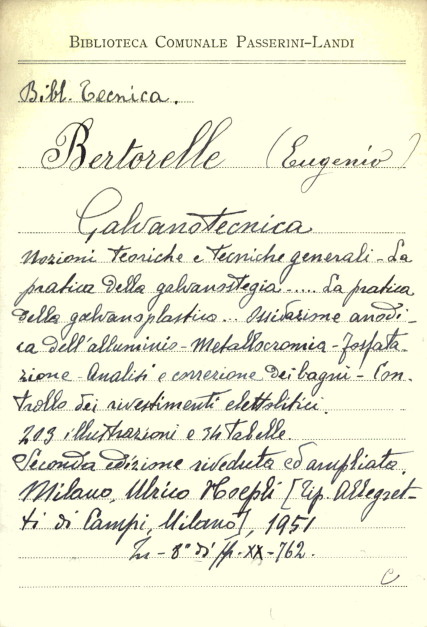 BIBLIOTECA COMUNALE PASSERINI-LANDI
Bibl. Tecnica.
Bertorelle (Eugenio)
Galvanotecnica
Nozioni teoriche e tecniche generali - La
pratica della galvanostegia ..... La pratica
della galvanoplastica ... Ossidazione anodi-
ca dell'alluminio - Metallocromia - Fosfata-
zione - Analisi e correzione dei bagni - Con-
trollo dei rivestimenti elettolitici.
203 illustrazioni e 34 tabelle
Seconda edizione riveduta ed ampliata.
Milano, Ulrico Hoepli [Tip. Allegret-
ti di Campi, Milano], 1951
In - 8° di pp. XX - 762.
C